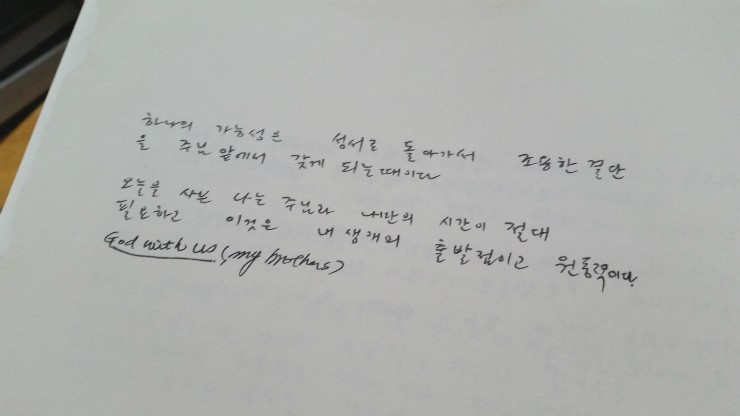 하나의 가능성은 성서로 돌아가서 조용한 결단
을 주님 앞에서 갖게 되는 때이다
오늘을 사는 나는 주님과 내란의 시간이 절대
필요하고 이것은 내 생애의 출발점이고 원동력이다.
God with us (my brothers)